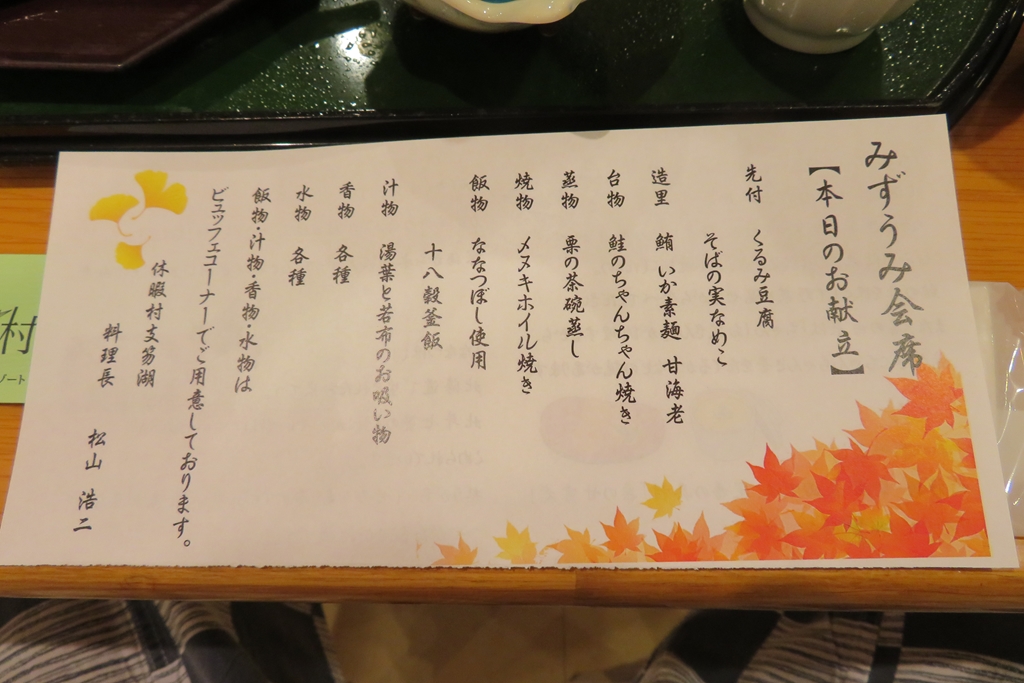 みずうみ会席
【本日のお献立】
先付 くるみ豆腐
そばの実なめこ
造里 鮪 いか素麺 甘海老
台物 鮭のちゃんちゃん焼き
蒸物 栗の茶碗蒸し
焼物 メヌキホイル焼き
飯物 ななつぼし使用
十八穀釜飯
汁物 湯葉と若布のお吸い物
香物 各種
水物 各種
飯物・汁物・香物・水物は
ビュッフェコーナーでご用意しております。
休暇村支笏湖
料理長 松山 浩二
村
ノート